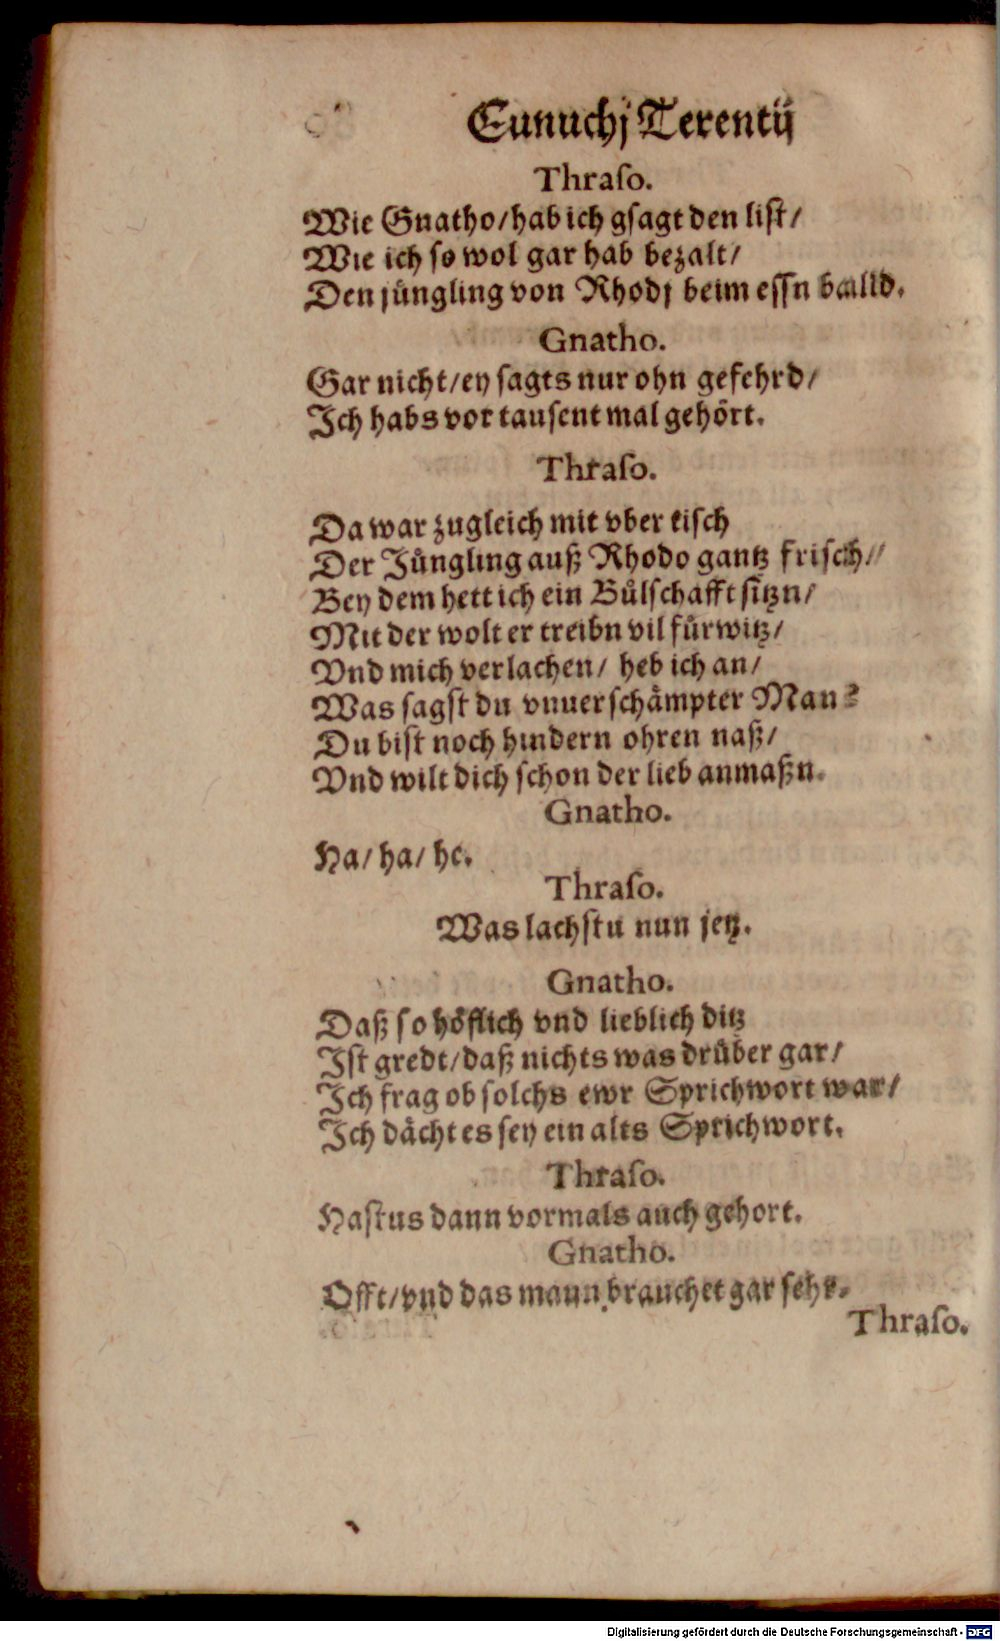 Eunuchj Terentij
Thraſo.
Wie Gnatho/hab ich gſagt den liſt/
Wie ich ſo wol gar hab bezalt/
Den jüngling von Rhodj beim eſſn balld.
Gnatho.
Gar nicht/ey ſagts nur ohn gefehrd/
Ich habs vor tauſent mal gehört.
Thraſo.
Da war zugleich mit vber tiſch
Der Jüngling auß Rhodo gantz friſch/
Bey dem hett ich ein Bůlſchafft ſitzn/
Mit der wolt er treibn vil fürwitz/
Vnd mich verlachen/ heb ich an/
Was ſagſt du vnuerſchämpter Man?
Du biſt noch hindern ohren naß/
Vnd wilt dich ſchon der lieb anmaßn.
Gnatho.
Ha/ ha/ he.
Thraſo.
Was lachſtu nun jetz.
Gnatho.
Daß ſo höflich vnd lieblich ditz
Iſt gredt/daß nichts was drüber gar/
Ich frag ob ſolchs ewr Sprichwort war/
Ich dächt es ſey ein alts Sprichwort.
Thraſo.
Haſtus dann vormals auch gehort.
Gnatho.
Offt/vnd das mann brauchet gar ſehr.
Thraſo.
Digitalisierung gefördert durch die Deutsche Forschungsgemeinschaft - DFG